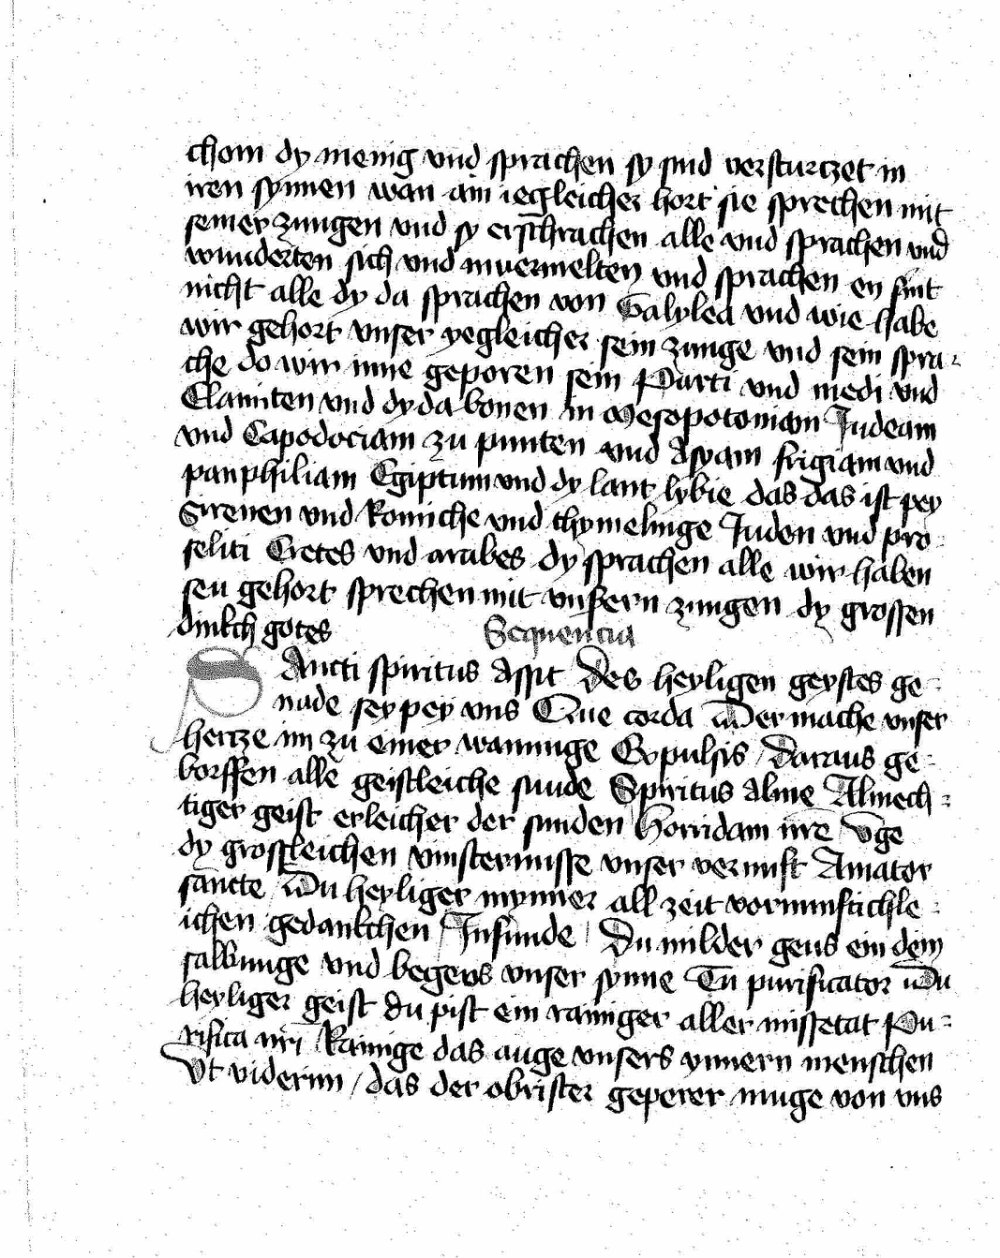 chom dy menig vnd sprachen sy sind versturczet in
iren synnen wan am iegleicher hort sie sprechen mit
seiner zungen vnd sy erschrachen alle vnd sprachen vnd
wunderten sich vnd vnd sprachen en sint
nicht alle dy da sprachen von Galylea vnd wie habe
wir gehort vnser yegleicher sein zunge vnd sein spra-
che do wir inne geporen sein Parti vnd medi vnd
Elamiten vnd dy da bonen in Mesopotoniam Judeam
vnd Capodociam zu punten vnd Asyam frigiam vnd
panphiliam Egiptum vnd dy lant lybie das das ist pey
Sirenen vnd Romiche vnd chymelinge Juden vnd pro-
seliti Cretes vnd arabes dy sprachen alle wir haben
seu gehort sprechen mit vnsern zungen dy grossen
dinkch gotes Sequencia
Sancti spiritus assit Des heyligen geystes ge-
nade sey pey vns Que corda Der mache vnser
hertze im zu einer wanunge Expulsis / Daraus ge-
borffen alle geistleiche sunde Spiritus alme Almech-
tiger geist erleicher der sunden Horridam
dy grossleichen vinsternusse vnser vernunft Amator
sancte / Du heyliger mynner all zeit vornunftichle-
ichen gedankchen / Infunde / Du milder geus ein dein
salbunge vnd begeus vnser synne Tu purificator Du
heyliger geist du pist ein rainiger aller missetat Pu-
rifica nri Rainige das auge vnsers ynnern menschen
Vt viderim / das der obrister geperer muge von vns